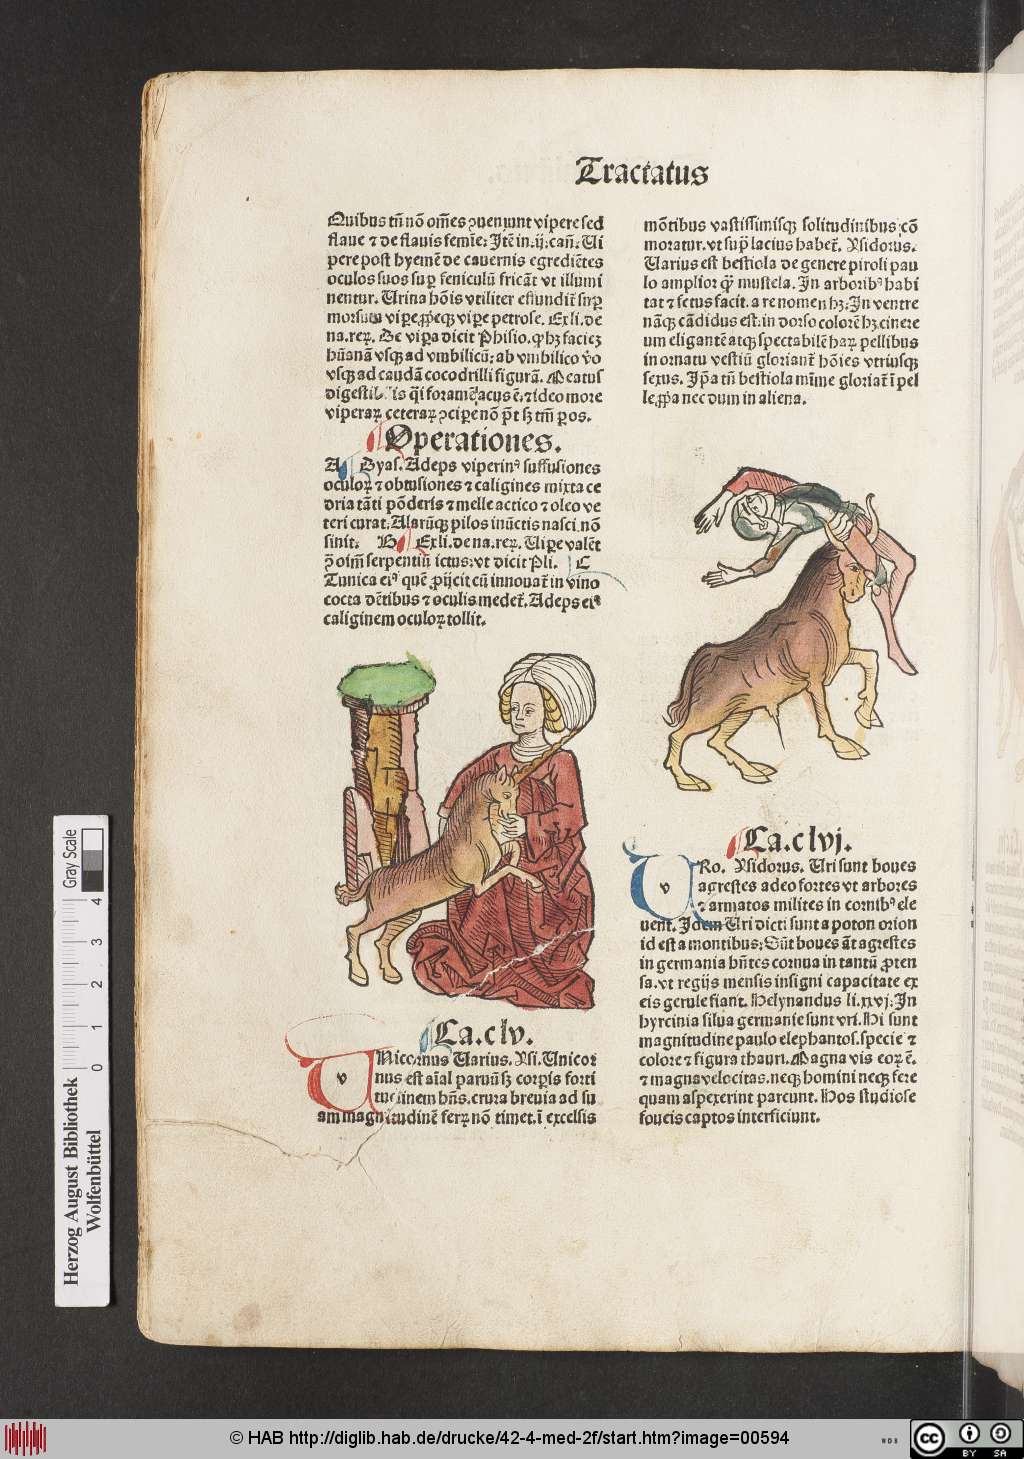 Tractatus
Quibus tñ nõ om̃es ꝯueniunt vipere sed
flaue ⁊ de flauis femĩe: Itẽ in .ij. cañ. Ui
pere post hyemẽ de cauernis egrediẽtes
oculos suos suꝑ feniculũ fricãt vt illumi
nentur. Urina hõis vtiliter effundit̃ suꝑ
morsum viꝑe ꝓpeqꝫ viꝑe petrose. Ex li. de
na. reꝝ. De viꝑa dicit Phisio. ꝙ hꝫ facieꝫ
hũanã vsqꝫ ad vmbilicũ: ab vmbilico ṽo
vsqꝫ ad caudã cocodrilli figurã. Meatus
digestibilis q̃i foramẽ acus ẽ: ⁊ ideo more
viperaꝝ ceteraꝝ ꝯciꝑe nõ põt sꝫ tm̃ pos.
Operationes.
A Dyas. Adeps viperinꝰ suffusiones
oculoꝝ ⁊ obtusiones ⁊ caligines mixta ce
dria tãti põderis ⁊ melle actico ⁊ oleo ve
teri curat: Alarũqꝫ pilos inũctis nasci nõ
sinit. B Ex li. de na. reꝝ. Uiꝑe valẽt
ꝯ̃ oĩm serpentiũ ictus: vt dicit Pli. C
Tunica eiꝰ quẽ ꝓijcit cũ innouat̃ in vino
cocta dẽtibus ⁊ oculis medet̃. Adeps eiꝰ
caliginem oculoꝝ tollit.
Ca. clv.
v
Niccornus Uarius. Ysi. Unicor
nus est aĩal paruũ sꝫ corꝑis forti
tudinem hñs. crura breuia ad su
am magnitudinẽ ferꝝ nõ timet. ĩ excelsis
mõtibus vastissimisqꝫ solitudinibus cõ
moratur. vt supͥ lacius habet̃. Ysidorus.
Uarius est bestiola de genere piroli pau
lo amplior q̃ꝫ mustela. In arboribꝰ habi
tat ⁊ fetus facit. a re nomen hꝫ. In ventre
nãqꝫ cãdidus est: in dorso colorẽ hꝫ cinere
um eligantẽ atqꝫ spectabilẽ haꝝ pellibus
in ornatu vestiũ gloriant̃ hõies vtriusqꝫ
sexus. Ip̃a tñ bestiola mĩme gloriat̃ ĩ pel
le ꝓpͥa nec dum in aliena.
Ca. clvj.
v
RO. Ysidorus. Uri sunt boues
agrestes adeo fortes vt arbores
⁊ armatos milites in cornibꝰ ele
uent. Idem Uri dicti sunt apoton orion
id est a montibus: Sũt boues ãt agrestes
in germania hñtes cornua in tantũ ꝓten
sa. vt regijs mensis insigni capacitate ex
eis gerule fiant. Helynandus li. xxvj. In
hyrcinia silua germanie sunt vri. Hi sunt
magnitudine paulo elephantos. specie ⁊
colore ⁊ figura thauri. Magna vis eoꝝ ẽ.
⁊ magna velocitas. neqꝫ homini neqꝫ fere
quam aspexerint parcunt. Hos studiose
foueis captos interficiunt.
Herzog August Bibliothek
Wolfenbüttel
0 1 2 3 4
Gray Scale
© HAB http://diglib.hab.de/drucke/42-4-med-2f/start.htm?image=00594
WDB
cc BY SA